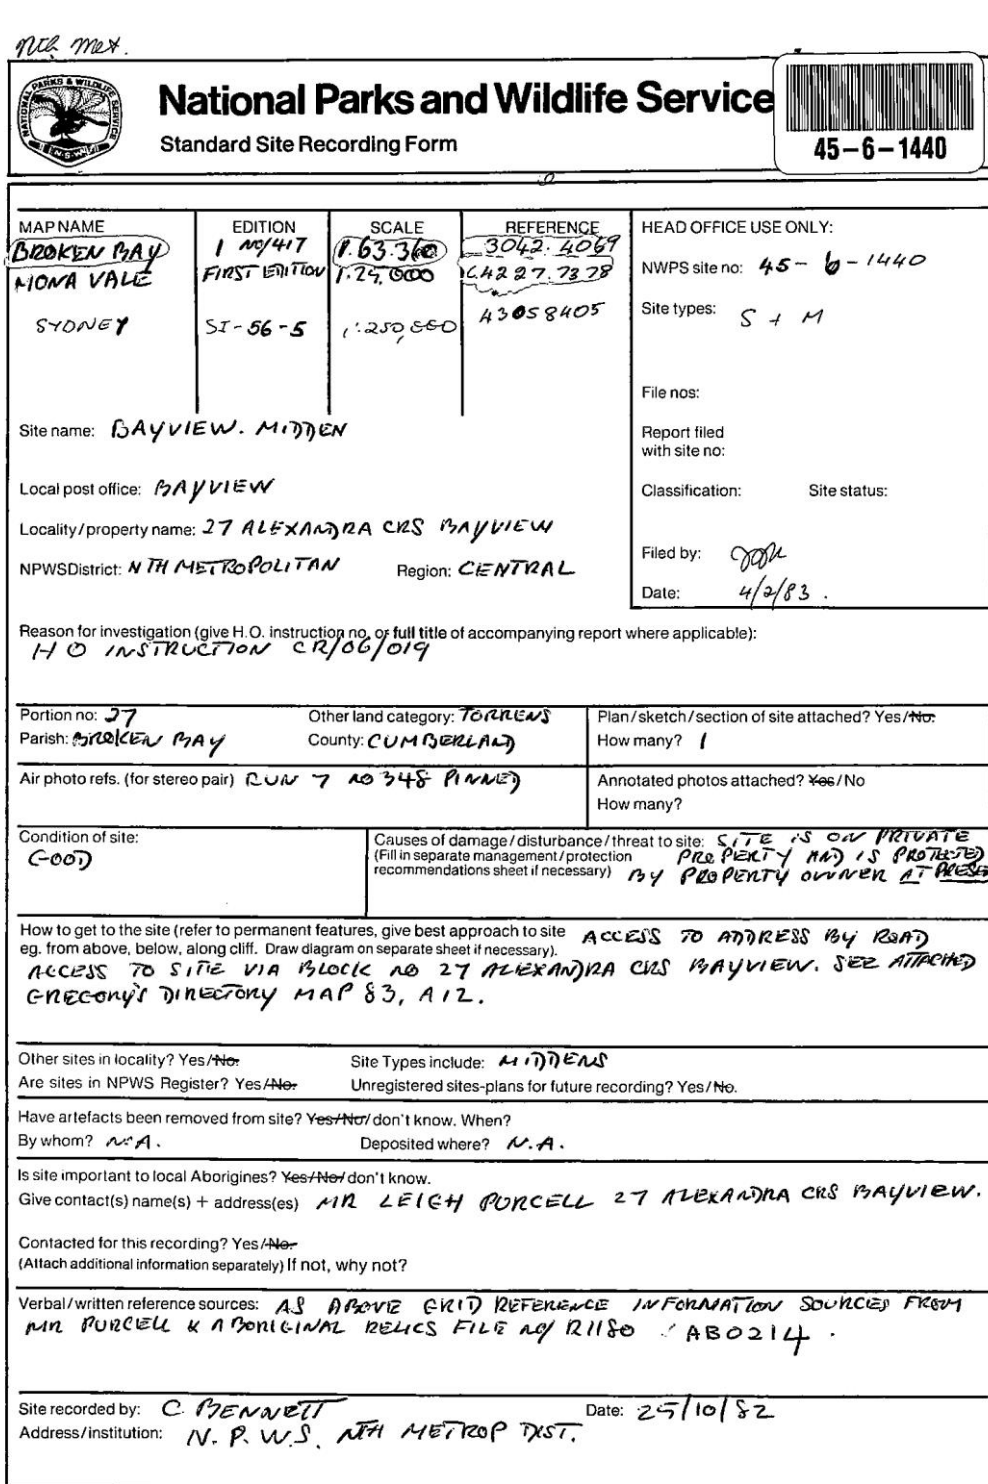 Nth Met.
NATIONAL PARKS & WILDLIFE SERVICE
N.S.W.
National Parks and Wildlife Service
Standard Site Recording Form
45-6-1440
MAP NAME EDITION SCALE REFERENCE
BROKEN BAY 1 NO/417 1.63.360 3042.4069
MONA VALE FIRST EDITION 1.25,000 C4227.7378
SYDNEY SI-56-5 1:250,000 43058405
HEAD OFFICE USE ONLY:
NWPS site no: 45-6-1440
Site types: S + M
File nos:
Report filed
with site no:
Classification: Site status:
Filed by:
Date: 4/2/83.
Site name: BAYVIEW. MIDDEN
Local post office: BAYVIEW
Locality/property name: 27 ALEXANDRA CRS BAYVIEW
NPWS District: NTH METROPOLITAN Region: CENTRAL
Reason for investigation (give H.O. instruction no. or full title of accompanying report where applicable):
H O INSTRUCTION CR/06/019
Portion no: 27 Other land category: TORRENS
Parish: BROKEN BAY County: CUMBERLAND
Plan/sketch/section of site attached? Yes/No.
How many? 1
Air photo refs. (for stereo pair) RUN 7 NO 348 PINNED
Annotated photos attached? Yes/No
How many?
Condition of site:
GOOD
Causes of damage/disturbance/threat to site: SITE IS ON PRIVATE
(Fill in separate management/protection PROPERTY AND IS PROTECTED
recommendations sheet if necessary) BY PROPERTY OWNER AT PRESE
How to get to the site (refer to permanent features, give best approach to site ACCESS TO ADDRESS BY ROAD
eg. from above, below, along cliff. Draw diagram on separate sheet if necessary).
ACCESS TO SITE VIA BLOCK NO 27 ALEXANDRA CRS BAYVIEW. SEE ATTACHED
GREGORY'S DIRECTORY MAP 83, A12.
Other sites in locality? Yes/No. Site Types include: MIDDENS
Are sites in NPWS Register? Yes/No. Unregistered sites-plans for future recording? Yes/No.
Have artefacts been removed from site? Yes/No/don't know. When?
By whom? N.A. Deposited where? N.A.
Is site important to local Aborigines? Yes/No/don't know.
Give contact(s) name(s) + address(es) MR LEIGH PURCELL 27 ALEXANDRA CRS BAYVIEW.
Contacted for this recording? Yes/No.
(Attach additional information separately) If not, why not?
Verbal/written reference sources: AS ABOVE GRID REFERENCE INFORMATION SOURCES FROM
MR PURCELL & ABORIGINAL RELICS FILE NO/ R1180 AB0214.
Site recorded by: C. BENNETT Date: 25/10/82
Address/institution: N.P.W.S. NTH METROP DIST.